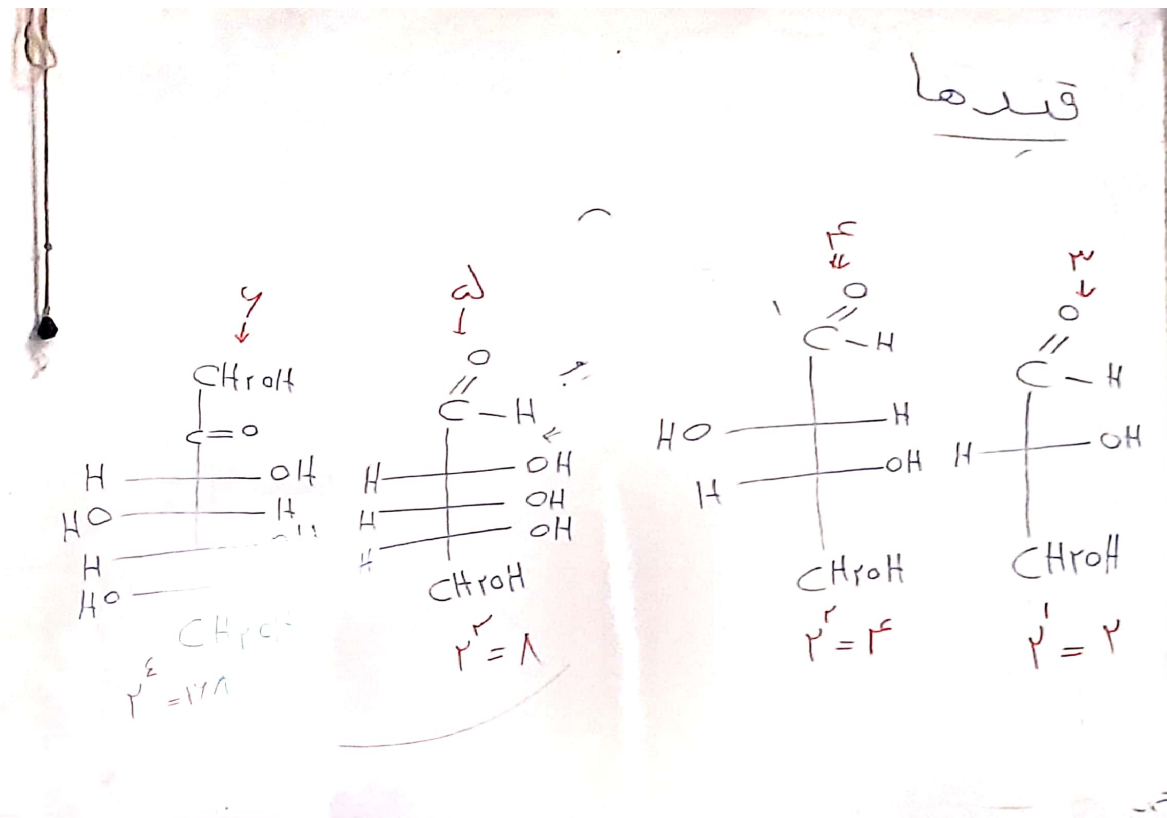 قندها
۳
O
C - H
H OH
CH۲OH
۲^۱ = ۲
۴
O
C - H
HO H
H OH
CH۲OH
۲^۲ = ۴
۵
O
C - H
H OH
H OH
H OH
CH۲OH
۲^۳ = ۸
۶
CH۲OH
C=O
H OH
HO H
H
HO